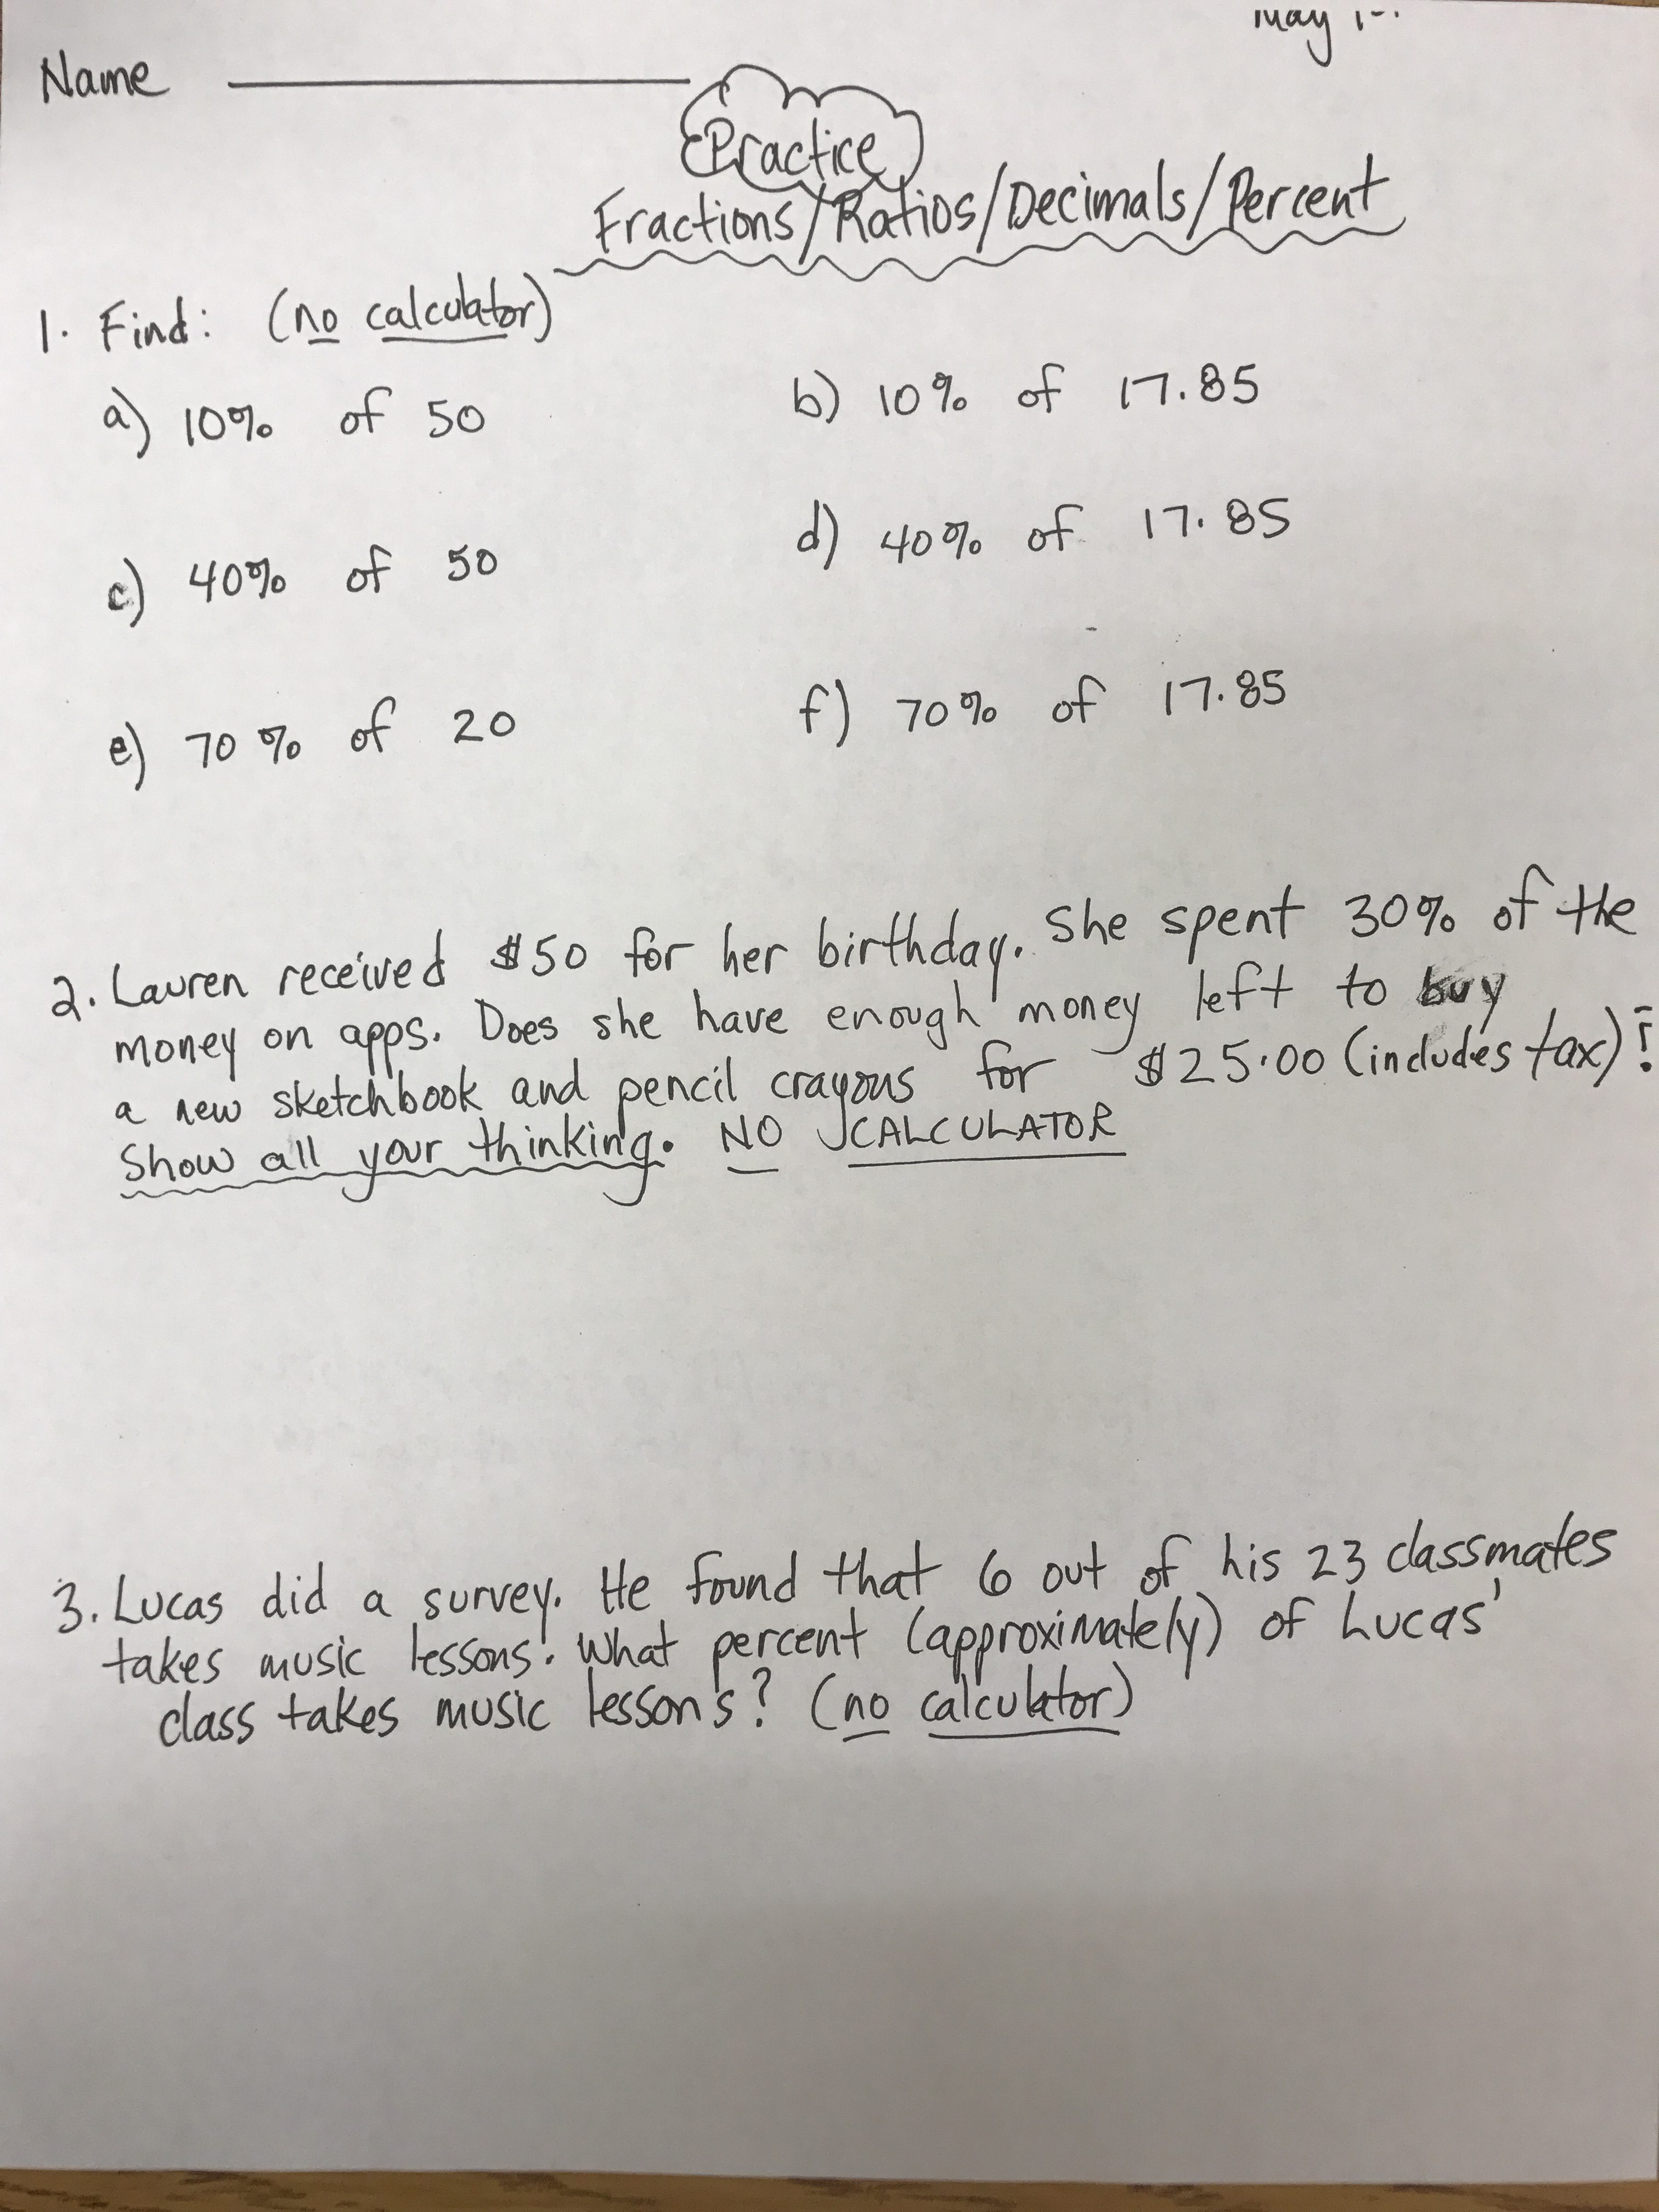 May
Name
Practice
Fractions/Ratios/Decimals/Percent
1. Find: (no calculator)
a) 10% of 50
b) 10% of 17.85
c) 40% of 50
d) 40% of 17.85
e) 70% of 20
f) 70% of 17.85
2. Lauren received $50 for her birthday. She spent 30% of the
money on apps. Does she have enough money left to buy
a new sketchbook and pencil crayons for $25.00 (includes tax)?
Show all your thinking. NO CALCULATOR
3. Lucas did a survey. He found that 6 out of his 23 classmates
takes music lessons. What percent (approximately) of Lucas'
class takes music lessons? (no calculator)